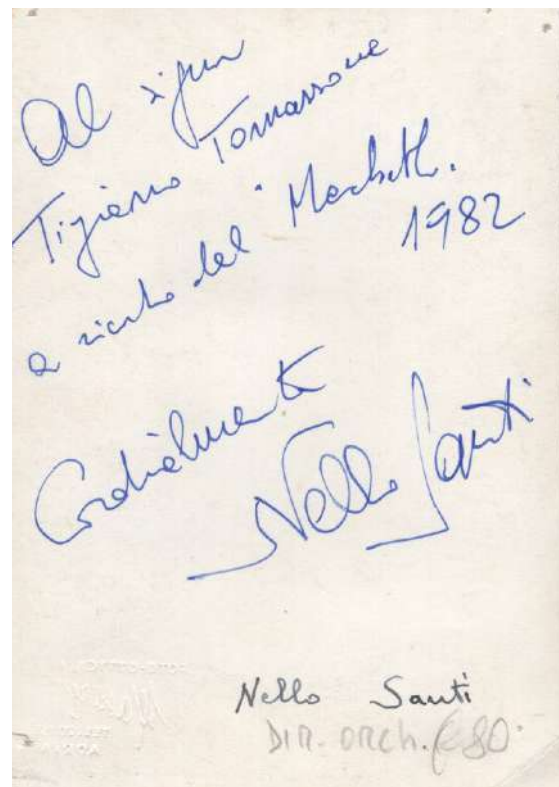 Al signor
Tiziano Tomassone
a ricordo del "Macbeth".
1982
Cordialmente
Nello Santi
Nello Santi
DIR. ORCH. € 80.